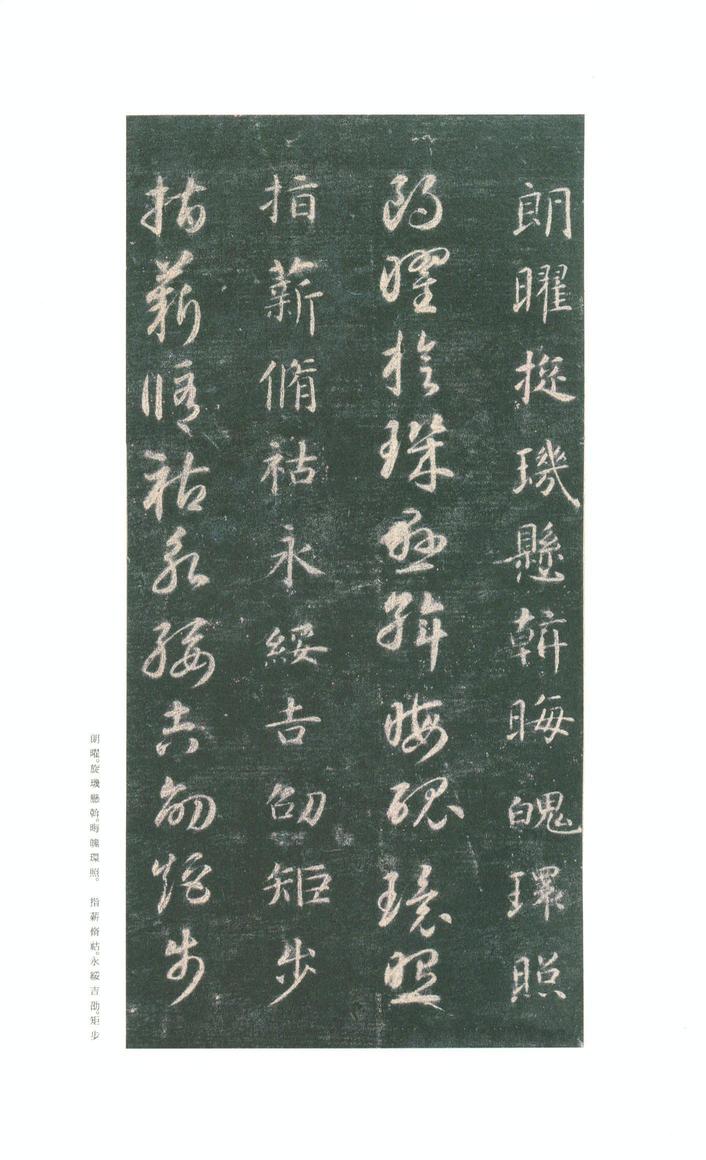 朗曜旋璣懸斡晦魄環照
朗曜旋璣懸斡晦魄環照
指薪脩祜永綏吉劭矩步
指薪脩祜永綏吉劭矩步
朗曜。旋璣懸斡。晦魄環照。 指薪脩祜。永綏吉劭。矩步